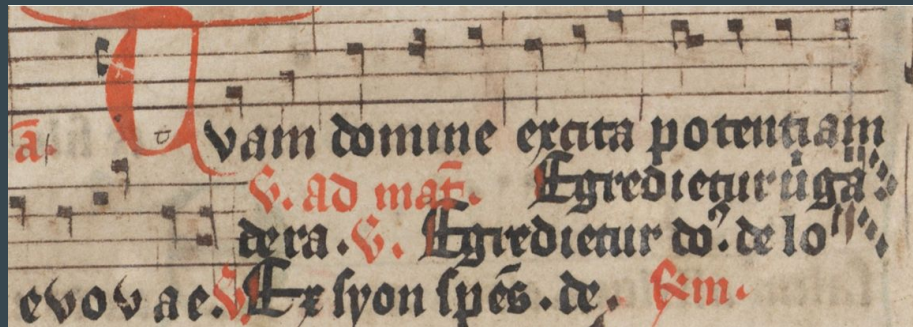 a. Tvam domine excita potentiam
V. ad mat̄. Egredietur ūga
de ra. V. Egredietur do². de lo
evovae. V. Ex syon spēs. de. Fem.